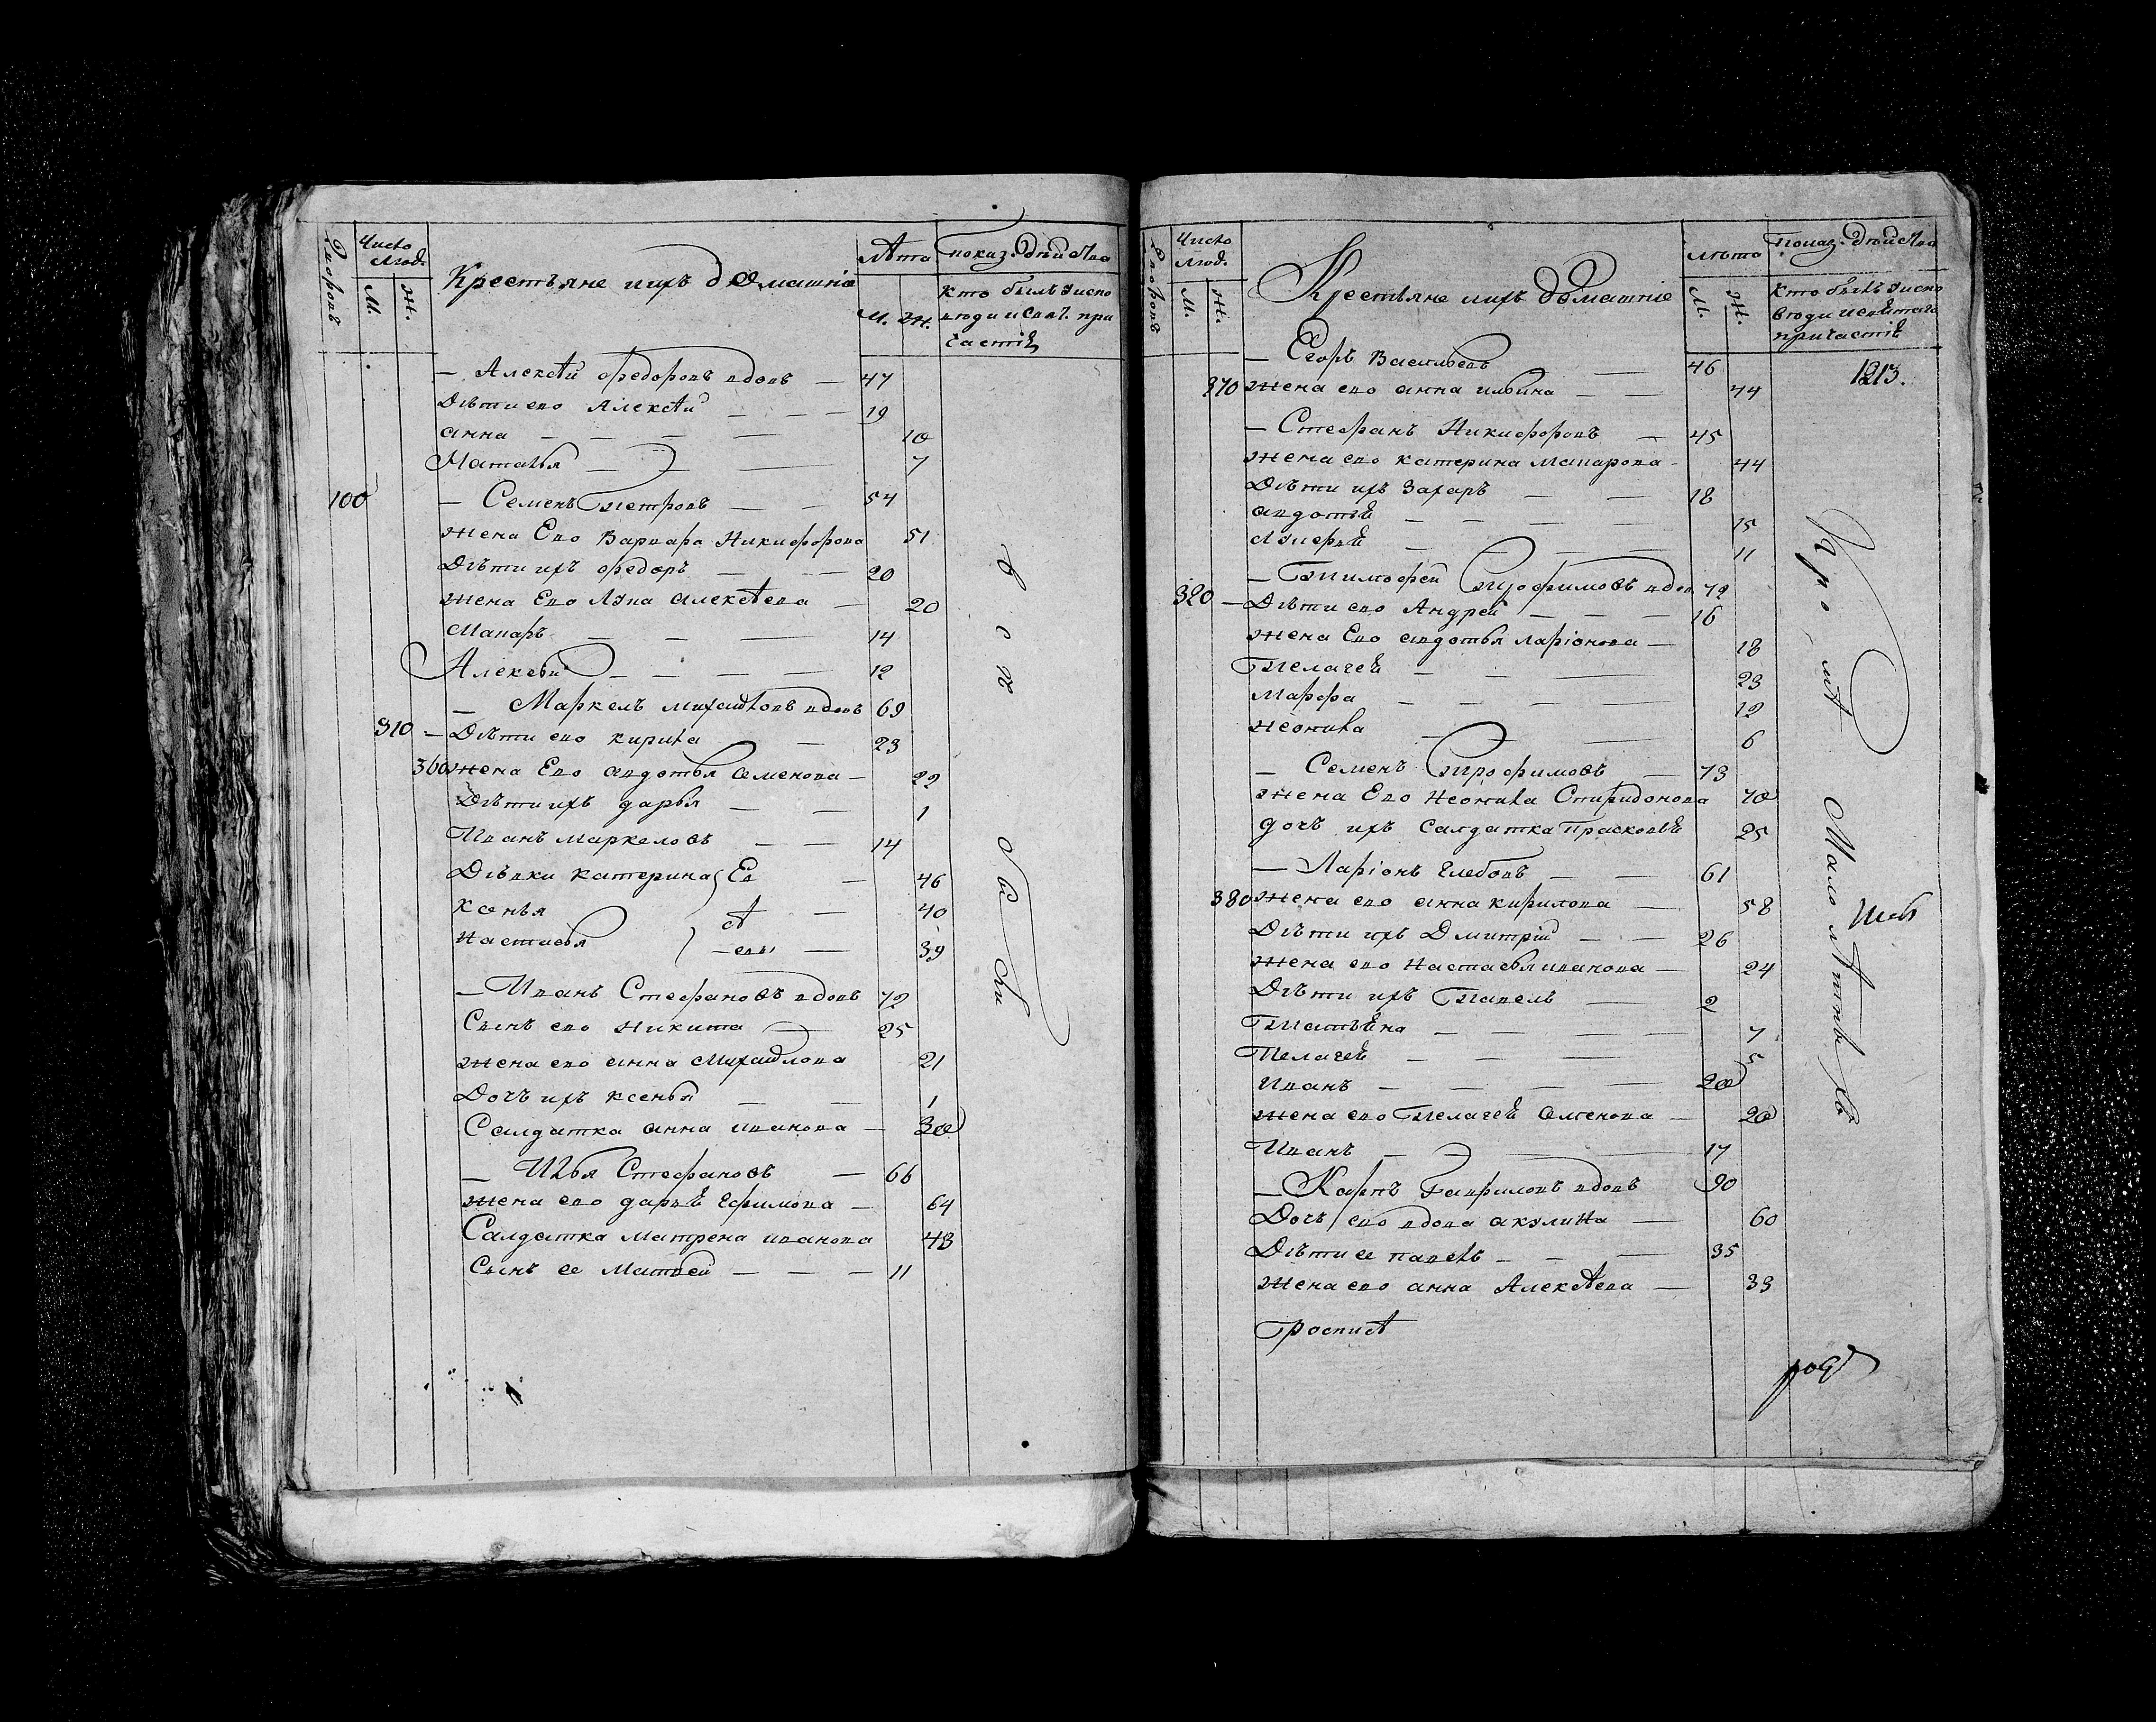 Дворовъ
Число Люд.
М. Ж.
Крестьяне ихъ домашнія
Лѣта
М. Ж.
показ. дѣйства
кто былъ у испо
вѣди и свят. при
частія
— Алексѣй Федоровъ вдовъ — 47
Дѣти ево Алексѣй — — — 19
анна — — — — 10
Наталья — — — 7
100 — Семенъ Петровъ — — 54
жена Ево Варвара Никифорова 51
Дѣти ихъ федоръ — — 20
жена Ево Лука алексѣева — 20
Макаръ — — — 14
Алексѣй — — — — 12
— Маркелъ михайловъ вдовъ 69
310 — Дѣти ево кирила — 23
360 жена Ево авдотья семенова — 22
Дѣти ихъ дарья — — 1
Иванъ маркеловъ — — 14
Дѣвки катерина Ев — 46
ксенья сѣ — 40
настасья — евы — 39
— Иванъ Стефановъ вдовъ 72
Сынъ ево никита — 25
жена ево анна Михайлова 21
Дочь ихъ ксенья — — 1
Салдатка анна иванова — 30
— Илья Стефановъ — 66
жена ево дарья ефимова — 64
Салдатка матрена иванова 43
Сынъ ее матвей — — — 11
Дворовъ
Число Люд.
М. Ж.
Крестьяне ихъ домашніе
лѣта
М. Ж.
показ. дѣйства
кто былъ у испо
вѣди и святаго
причастія
1213.
— Егоръ Васильевъ — 46
370 жена ево анна ильина — — 44
— Стефанъ Никифоровъ — 45
жена ево катерина макарова — 44
Дѣти ихъ Захаръ — — 18
авдотья — — — — 15
— — — 11
— Тимофей Трофимовъ вдов 72
320 — Дѣти ево Андрей — — — 16
жена Ево авдотья ларіонова — 18
Пелагея — — — 23
марфа — — — — 12
неонила — — 6
— Семенъ Трофимовъ — 73
жена Ево неонила Спиридонова 70
дочь ихъ салдатка Прасковья 25
— Ларіонъ Глебовъ — — 61
380 жена ево анна кирилова — 58
Дѣти ихъ Дмитрій — — 26
жена ево настасья иванова — 24
Дѣти ихъ Павелъ — 2
Татьяна — — — — 7
Пелагея — — — — 5
Иванъ — — — — 20
жена ево Пелагея семенова — 20
Иванъ — — — 17
— Карпъ Гавриловъ вдовъ 90
Дочь ево вдова акулина — 60
Дѣти ее павелъ — — — 35
жена ево анна Алексѣева — 33